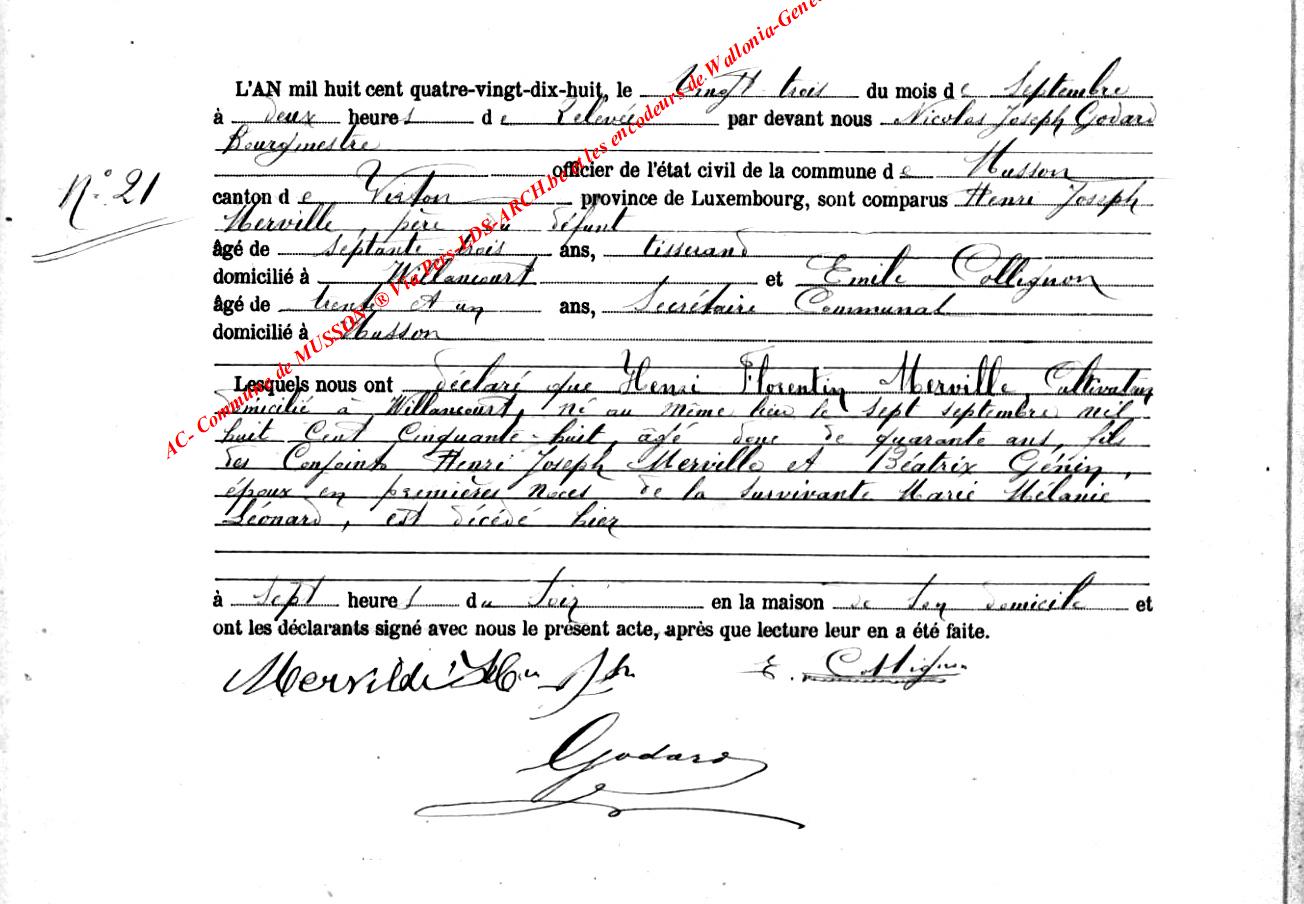 AC- Commune de MUSSON ® Via Pers-LDS-ARCH.be et les encodeurs de Wallonia-Gene
L'AN mil huit cent quatre-vingt-dix-huit, le Vingt trois du mois de Septembre
à deux heures de Relevée par devant nous Nicolas Joseph Godard
Bourgmestre
officier de l'état civil de la commune de Musson
N° 21
canton de Virton province de Luxembourg, sont comparus Henri Joseph
Merville, père du défunt
âgé de septante-trois ans, tisserand
domicilié à Willancourt et Emile Collignon
âgé de trente et un ans, Secrétaire Communal
domicilié à Musson
Lesquels nous ont déclaré que Henri Florentin Merville Cultivateur
domicilié à Willancourt, né au même lieu le sept septembre mil
huit cent cinquante-huit, âgé donc de quarante ans, fils
des Conjoints Henri Joseph Merville et Béatrix Génin,
époux en premières noces de la survivante Marie Mélanie
Léonard, est décédé hier
à sept heures du soir en la maison de son domicile et
ont les déclarants signé avec nous le présent acte, après que lecture leur en a été faite.
E. Collignon
Godard